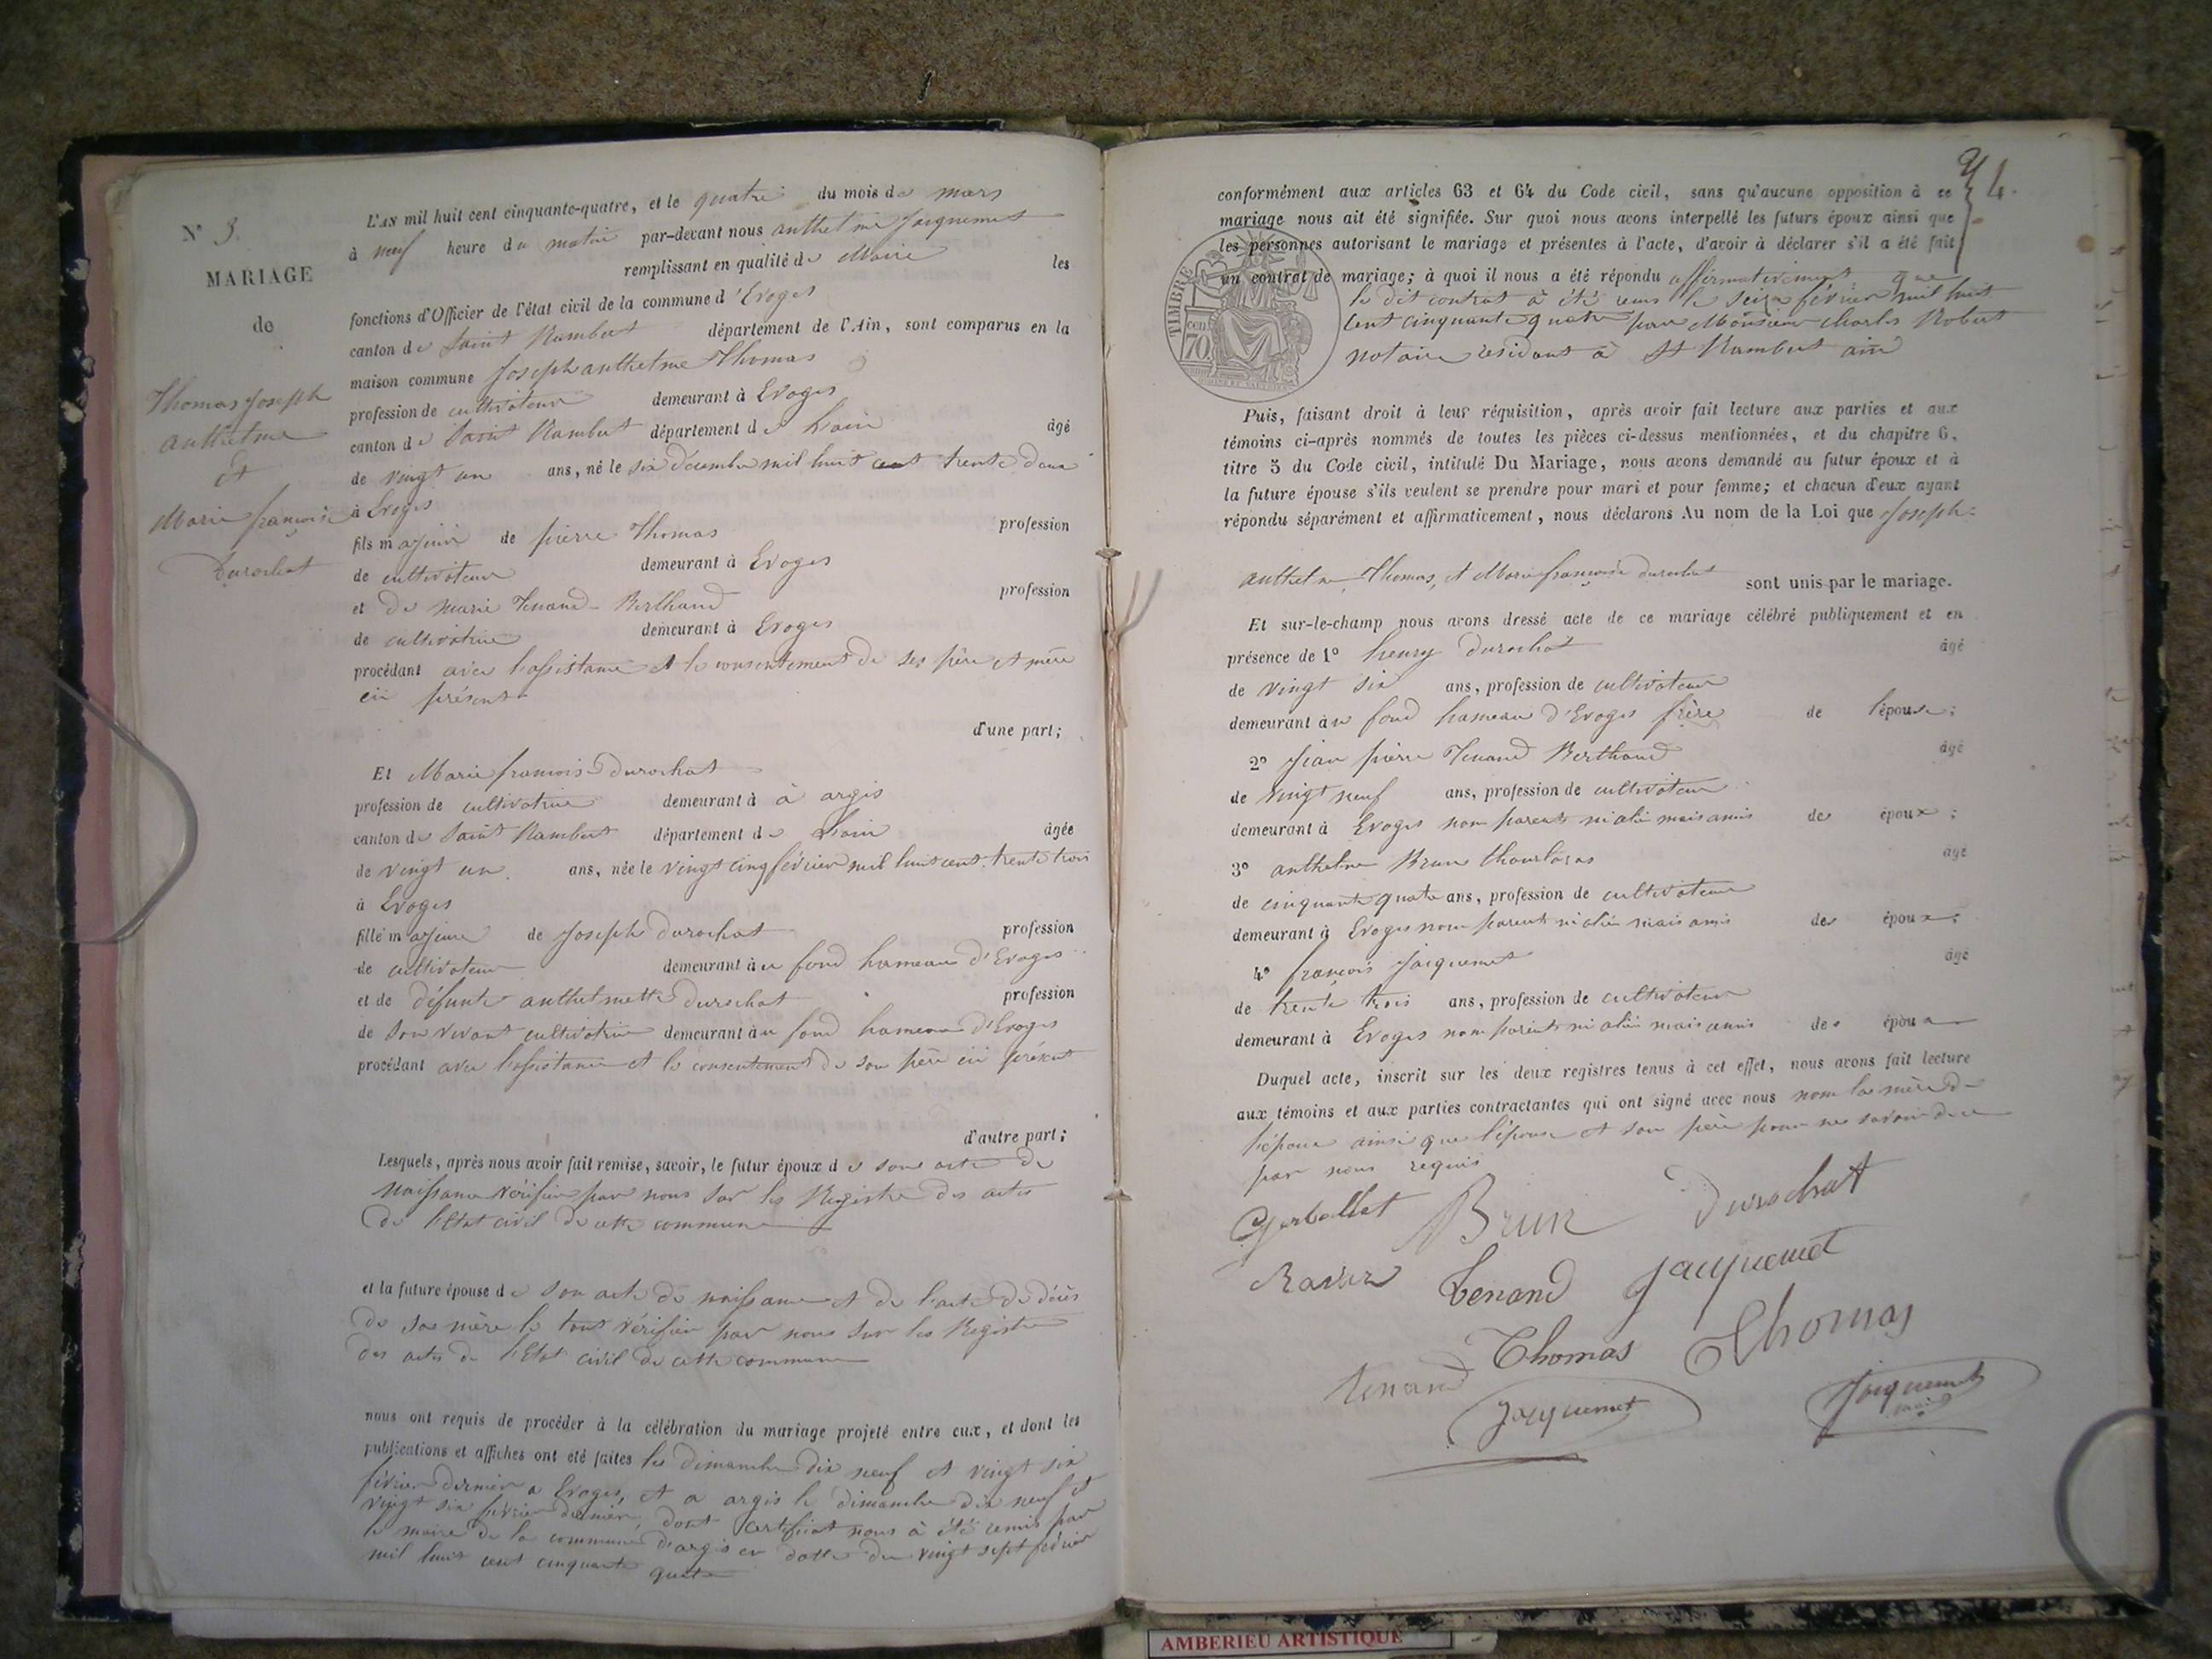 N° 3.
MARIAGE
de
Thomas Joseph
anthelme
Et
Marie françoise
Durochat
L'AN mil huit cent cinquante-quatre, et le quatre du mois de mars
à neuf heure du matin par-devant nous anthelme Jacquemet
remplissant en qualité de Maire les
fonctions d'Officier de l'état civil de la commune d'Evoges
canton de Saint Rambert département de l'Ain, sont comparus en la
maison commune Joseph anthelme Thomas
profession de cultivateur demeurant à Evoges
canton de Saint Rambert département de Lain âgé
de vingt un ans, né le six décembre mil huit cent trente deux
à Evoges
fils majeur de pierre Thomas profession
de cultivateur demeurant à Evoges
et de marie Tenand-Berthand profession
de cultivatrice demeurant à Evoges
procédant avec l'assistance et le consentement de ses père et mère
cii présents
d'une part;
Et Marie françoise Durochat
profession de cultivatrice demeurant à à argis
canton de Saint Rambert département de Lain âgée
de vingt un ans, née le vingt cinq février mil huit cent trente trois
à Evoges
fille majeure de Joseph Durochat profession
de cultivateur demeurant àu fond hameau d'Evoges
et de défunte anthelmette Durochat profession
de son vivant cultivatrice demeurant àu fond hameau d'Evoges
procédant avec l'assistance et le consentement de son père cii présent
d'autre part;
Lesquels, après nous avoir fait remise, savoir, le futur époux de son acte de
Naissance vérifié par nous sur les Registre des actes
de l'Etat civil de cette commune
et la future épouse de son acte de naissance et de l'acte de décès
de sa mère le tout vérifier par nous sur les Registre
des actes de l'Etat civil de cette commune
nous ont requis de procéder à la célébration du mariage projeté entre eux, et dont les
publications et affiches ont été faites les dimanche dix neuf et vingt six
février dernier a Evoges, et a argis le dimanche dix neuf et
vingt six février dernier, dont certificat nous à été remis par
le maire de la commune d'argis en datte du vingt sept février
mil huit cent cinquante quatre
4.
conformément aux articles 63 et 64 du Code civil, sans qu'aucune opposition à ce
mariage nous ait été signifiée. Sur quoi nous avons interpellé les futurs époux ainsi que
les personnes autorisant le mariage et présentes à l'acte, d'avoir à déclarer s'il a été fait
un contrat de mariage; à quoi il nous a été répondu affirmativement que
le dit contrat à été reçu le seize février mil huit
cent cinquante quatre par Monsieur charles Robert
notaire residant à St Rambert ain
TIMBRE
cen
70
Puis, faisant droit à leur réquisition, après avoir fait lecture aux parties et aux
témoins ci-après nommés de toutes les pièces ci-dessus mentionnées, et du chapitre 6,
titre 5 du Code civil, intitulé Du Mariage, nous avons demandé au futur époux et à
la future épouse s'ils veulent se prendre pour mari et pour femme; et chacun d'eux ayant
répondu séparément et affirmativement, nous déclarons Au nom de la Loi que Joseph
anthelme Thomas, et Marie françoise durochat sont unis par le mariage.
Et sur-le-champ nous avons dressé acte de ce mariage célébré publiquement et en
présence de 1° henry Durochat âgé
de vingt six ans, profession de cultivateur
demeurant àu fond hameau d'Evoges frère de l'épouse;
2° Jean pierre Tenand Berthand âgé
de vingt neuf ans, profession de cultivateur
demeurant à Evoges non parents ni alié mais amis des époux;
3° anthelme Brun âgé
de cinquante quatre ans, profession de cultivateur
demeurant à Evoges non parents ni alié mais amis des époux;
4° françois Jacquemet âgé
de trente trois ans, profession de cultivateur
demeurant à Evoges non parents ni alié mais amis des époux
Duquel acte, inscrit sur les deux registres tenus à cet effet, nous avons fait lecture
aux témoins et aux parties contractantes qui ont signé avec nous non la mère de
l'époux ainsi que l'épouse et son père pour ne savoir de ce
par nous requis
Gerballet Brun Durochat
Ravier Tenand Jacquemet
Thomas Thomas
Tenand Jacquemet Jacquemet
maire
AMBERIEU ARTISTIQUE